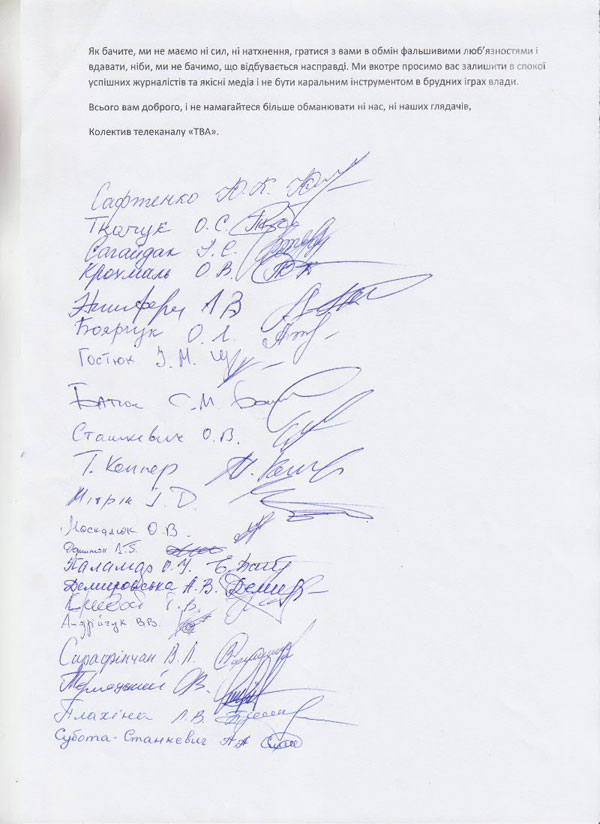 Як бачите, ми не маємо ні сил, ні натхнення, гратися з вами в обмін фальшивими люб'язностями і
вдавати, ніби, ми не бачимо, що відбувається насправді. Ми вкотре просимо вас залишити в спокої
успішних журналістів та якісні медіа і не бути каральним інструментом в брудних іграх влади.
Всього вам доброго, і не намагайтеся більше обманювати ні нас, ні наших глядачів,
Колектив телеканалу «ТВА».
Сафтенко Ю. К.
Ткачук О. С.
Сагайдак І. Є.
Крохмаль О В.
Л В
Боярчук О. Л.
Гостюк І. М.
С. М.
Сташкевич О. В.
Т.
І. D.
Москалюк О. В.
Паламар О. І.
Демировська А. В.
Андрійчук В.В.
Сарафінчан В. Л.
Плахіна Л. В.
Субота-Станкевич А А